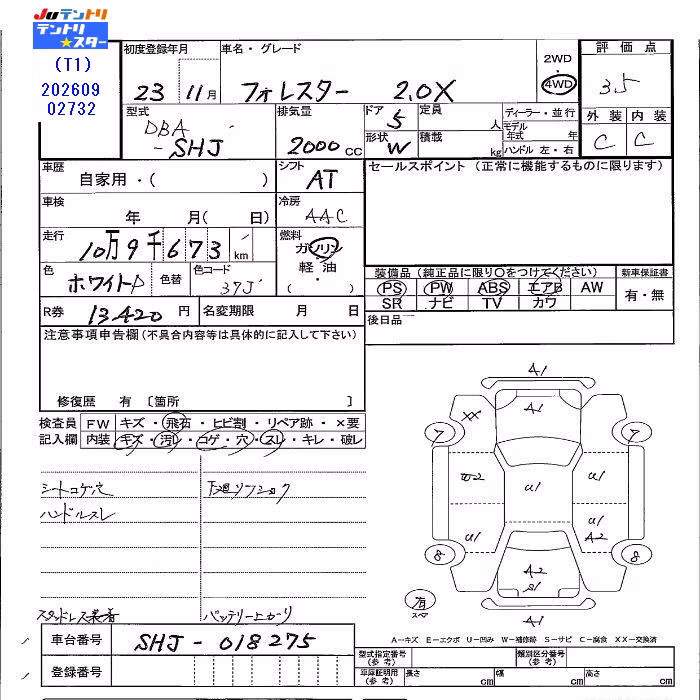 JUテントリ
テントリ
★スター
(T1)
202609
02732
初度登録年月
23年 11月
車名・グレード
フォレスター 2.0X
2WD
・
4WD
評価点
3.5
外装 内装
C C
型式
DBA
-SHJ
排気量
2000cc
ドア
5
形状
W
定員
人
積載
kg
ディーラー・並行
モデル
年式 年
ハンドル 左・右
車歴
自家用・( )
シフト
AT
セールスポイント(正常に機能するものに限ります)
車検
年 月( 日)
冷房
AAC
走行
10万9千673km
燃料
ガソリン
軽油
・( )
色
ホワイトP
色替
色コード
37J
装備品(純正品に限り○をつけてください)
PS PW ABS エアB AW
SR ナビ TV カワ
新車保証書
有・無
R券 13,420円
名変期限 月 日
後日品
注意事項申告欄(不具合内容等は具体的に記入して下さい)
修復歴 有 〔箇所 〕
検査員
記入欄
FW キズ・飛石・ヒビ割・リペア跡・×要
内装 キズ・汚れ・コゲ・穴・スレ・キレ・破レ
シートコゲ穴
ハンドルスレ
下廻リ
スタッドレス装着
バッテリー上がり
A1
A1
XX
7
7
U1
U1
U1
U1
A2
8
8
A2
S1
A1
有
スペア
A-キズ E-エクボ U-凹み W-補修跡 S-サビ C-腐食 XX-交換済
車台番号 SHJ-018275
登録番号
型式指定番号
(参考)
類別区分番号
(参考)
車庫証明用
(参考)
長さ cm
幅 cm
高さ cm